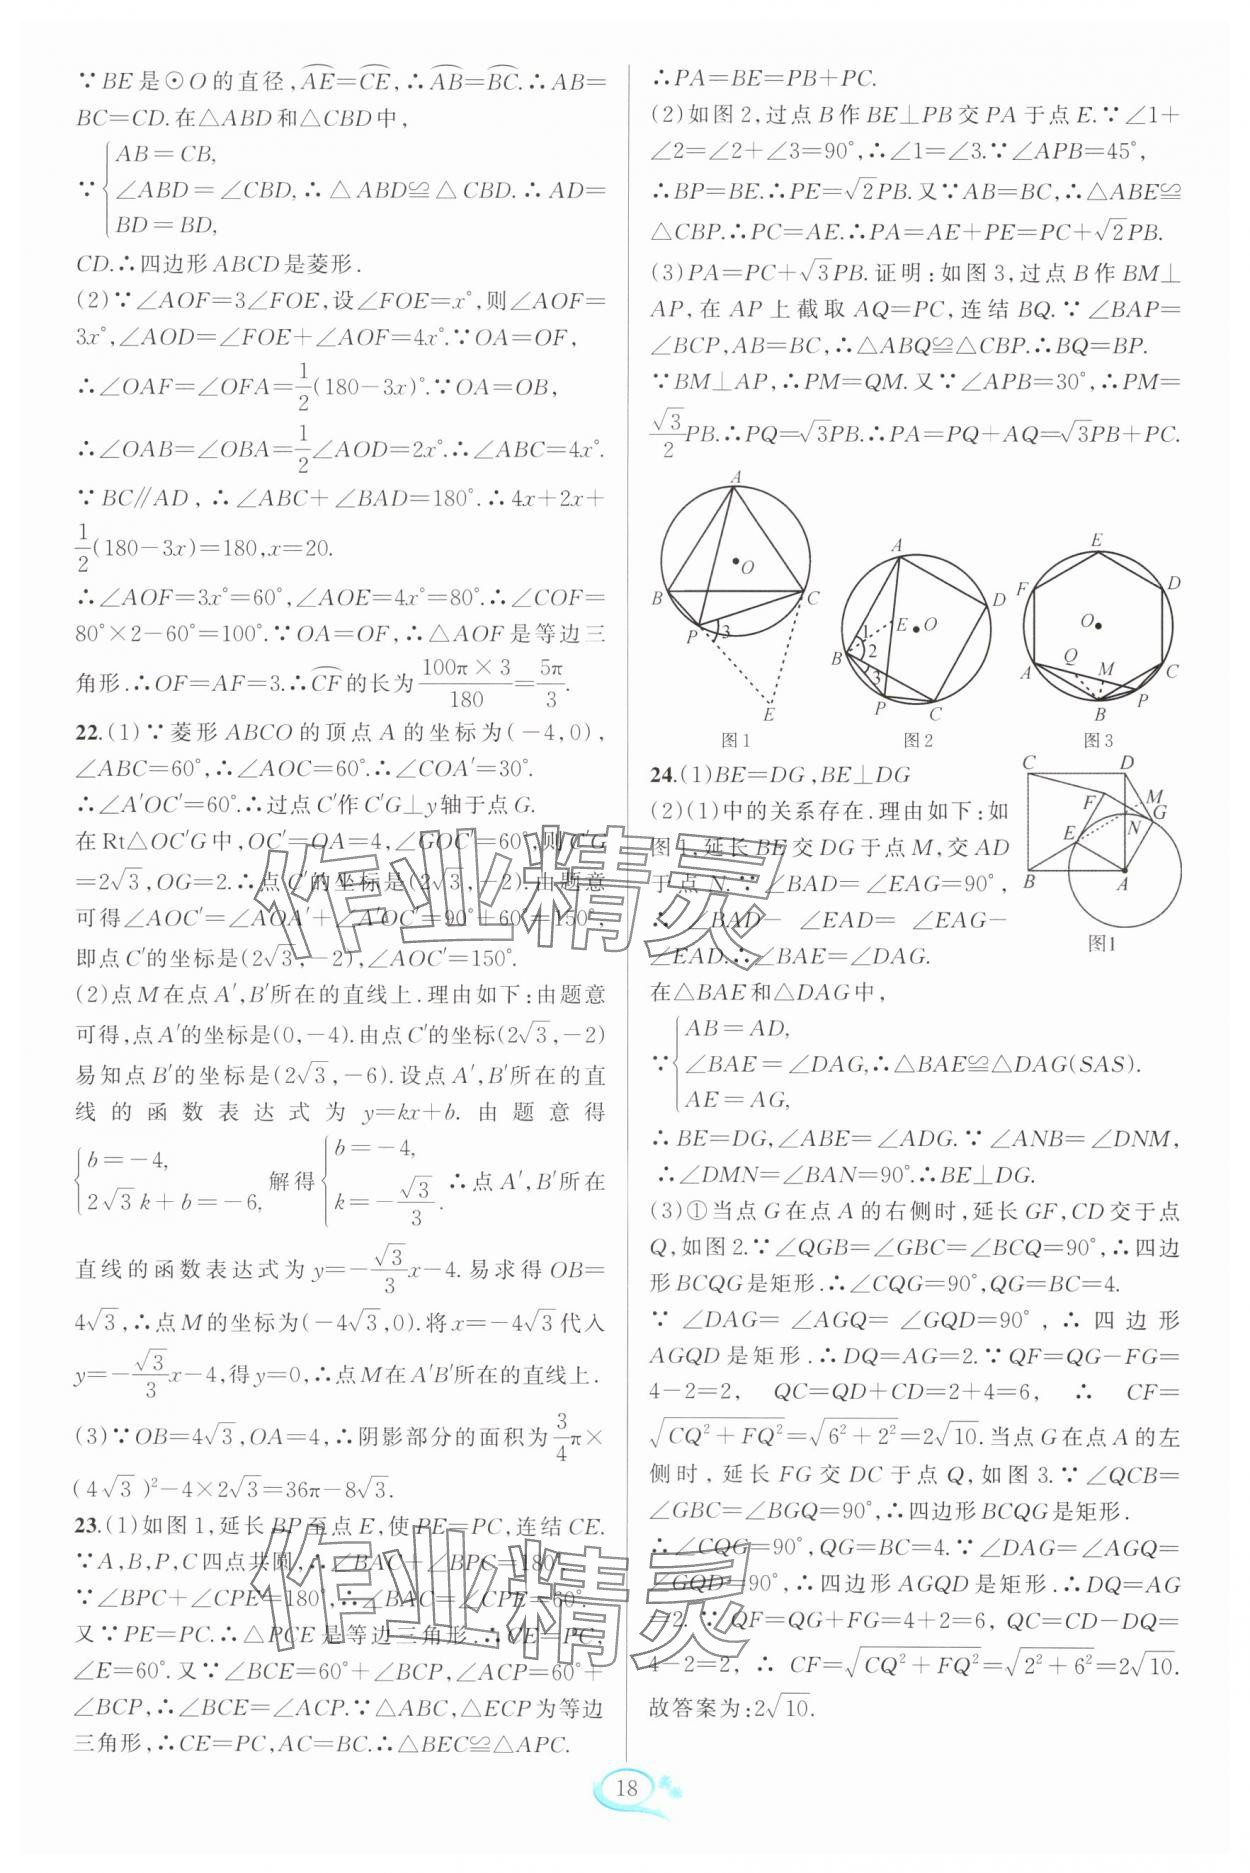 ∵BE是⊙O的直径,⌒AE=⌒CE,∴⌒AB=⌒BC.∴AB=
BC=CD.在△ABD和△CBD中,
∵{AB=CB,
∠ABD=∠CBD,∴△ABD≌△CBD.∴AD=
BD=BD,
CD.∴四边形ABCD是菱形.
(2)∵∠AOF=3∠FOE,设∠FOE=x°,则∠AOF=
3x°,∠AOD=∠FOE+∠AOF=4x°.∵OA=OF,
∴∠OAF=∠OFA=1/2(180-3x)°.∵OA=OB,
∴∠OAB=∠OBA=1/2∠AOD=2x°.∴∠ABC=4x°.
∵BC∥AD,∴∠ABC+∠BAD=180°.∴4x+2x+
1/2(180-3x)=180,x=20.
∴∠AOF=3x°=60°,∠AOE=4x°=80°.∴∠COF=
80°×2-60°=100°.∵OA=OF,∴△AOF是等边三
角形.∴OF=AF=3.∴⌒CF的长为100π×3/180=5π/3.
22.(1)∵菱形ABCO的顶点A的坐标为(-4,0),
∠ABC=60°,∴∠AOC=60°.∴∠COA′=30°.
∴∠A′OC′=60°.∴过点C′作C′G⊥y轴于点G.
在Rt△OC′G中,OC′=OA=4,∠GOC′=60°,则C′G
=2√3,OG=2.∴点C′的坐标是(2√3,-2).由题意
可得∠AOC′=∠AOA′+∠A′OC′=90°+60°=150°.
即点C′的坐标是(2√3,-2),∠AOC′=150°.
(2)点M在点A′,B′所在的直线上.理由如下:由题意
可得,点A′的坐标是(0,-4).由点C′的坐标(2√3,-2)
易知点B′的坐标是(2√3,-6).设点A′,B′所在的直
线的函数表达式为y=kx+b.由题意得
{b=-4, 2√3k+b=-6, 解得{b=-4, k=-√3/3. ∴点A′,B′所在
直线的函数表达式为y=-√3/3x-4.易求得OB=
4√3,∴点M的坐标为(-4√3,0).将x=-4√3代入
y=-√3/3x-4,得y=0,∴点M在A′B′所在的直线上.
(3)∵OB=4√3,OA=4,∴阴影部分的面积为3/4π×
(4√3)²-4×2√3=36π-8√3.
23.(1)如图1,延长BP至点E,使PE=PC,连结CE.
∵A,B,P,C四点共圆,∴∠BAC+∠BPC=180°.
∵∠BPC+∠CPE=180°,∴∠BAC=∠CPE=60°.
又∵PE=PC.∴△PCE是等边三角形.∴CE=PC,
∠E=60°.又∵∠BCE=60°+∠BCP,∠ACP=60°+
∠BCP,∴∠BCE=∠ACP.∵△ABC,△ECP为等边
三角形,∴CE=PC,AC=BC.∴△BEC≌△APC.
∴PA=BE=PB+PC.
(2)如图2,过点B作BE⊥PB交PA于点E.∵∠1+
∠2=∠2+∠3=90°,∴∠1=∠3.∵∠APB=45°,
∴BP=BE.∴PE=√2PB.又∵AB=BC,∴△ABE≌
△CBP.∴PC=AE.∴PA=AE+PE=PC+√2PB.
(3)PA=PC+√3PB.证明:如图3,过点B作BM⊥
AP,在AP上截取AQ=PC,连结BQ.∵∠BAP=
∠BCP,AB=BC,∴△ABQ≌△CBP.∴BQ=BP.
∵BM⊥AP,∴PM=QM.又∵∠APB=30°,∴PM=
√3/2PB.∴PQ=√3PB.∴PA=PQ+AQ=√3PB+PC.
A
O
B
C
P
3
E
图1
A
D
E
O
1
B
2
3
P
C
图2
E
F
D
O
A
Q
M
C
P
B
图3
24.(1)BE=DG,BE⊥DG
(2)(1)中的关系存在.理由如下:如
图1,延长BE交DG于点M,交AD
于点N.∵∠BAD=∠EAG=90°,
∴∠BAD-∠EAD=∠EAG-
∠EAD.∴∠BAE=∠DAG.
C
D
F
M
G
E
N
B
A
图1
在△BAE和△DAG中,
∵{AB=AD,
∠BAE=∠DAG,∴△BAE≌△DAG(SAS).
AE=AG,
∴BE=DG,∠ABE=∠ADG.∵∠ANB=∠DNM,
∴∠DMN=∠BAN=90°.∴BE⊥DG.
(3)①当点G在点A的右侧时,延长GF,CD交于点
Q,如图2.∵∠QGB=∠GBC=∠BCQ=90°,∴四边
形BCQG是矩形.∴∠CQG=90°,QG=BC=4.
∵∠DAG=∠AGQ=∠GQD=90°,∴四边形
AGQD是矩形.∴DQ=AG=2.∵QF=QG-FG=
4-2=2,QC=QD+CD=2+4=6,∴CF=
√(CQ²+FQ²)=√(6²+2²)=2√10.当点G在点A的左
侧时,延长FG交DC于点Q,如图3.∵∠QCB=
∠GBC=∠BGQ=90°,∴四边形BCQG是矩形.
∴∠CQG=90°,QG=BC=4.∵∠DAG=∠AGQ=
∠GQD=90°,∴四边形AGQD是矩形.∴DQ=AG
=2.∵QF=QG+FG=4+2=6,QC=CD-DQ=
4-2=2,∴CF=√(CQ²+FQ²)=√(2²+6²)=2√10.
故答案为:2√10.
作业精灵
作业精灵
18